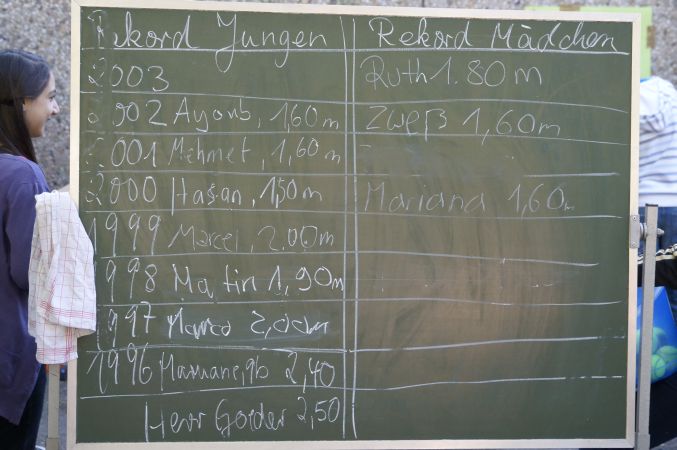 Rekord Jungen Rekord Mädchen
2003 Ruth 1.80 m
2002 Ayoub, 1,60 m 1,60 m
2001 Mehmet, 1,60 m
2000 Hasan, 1,50 m Mariana 1,60m
1999 Marcel, 2.00m
1998 Martin 1,90m
1997 Marco
1996 2,40
Herr Gorder 2,50